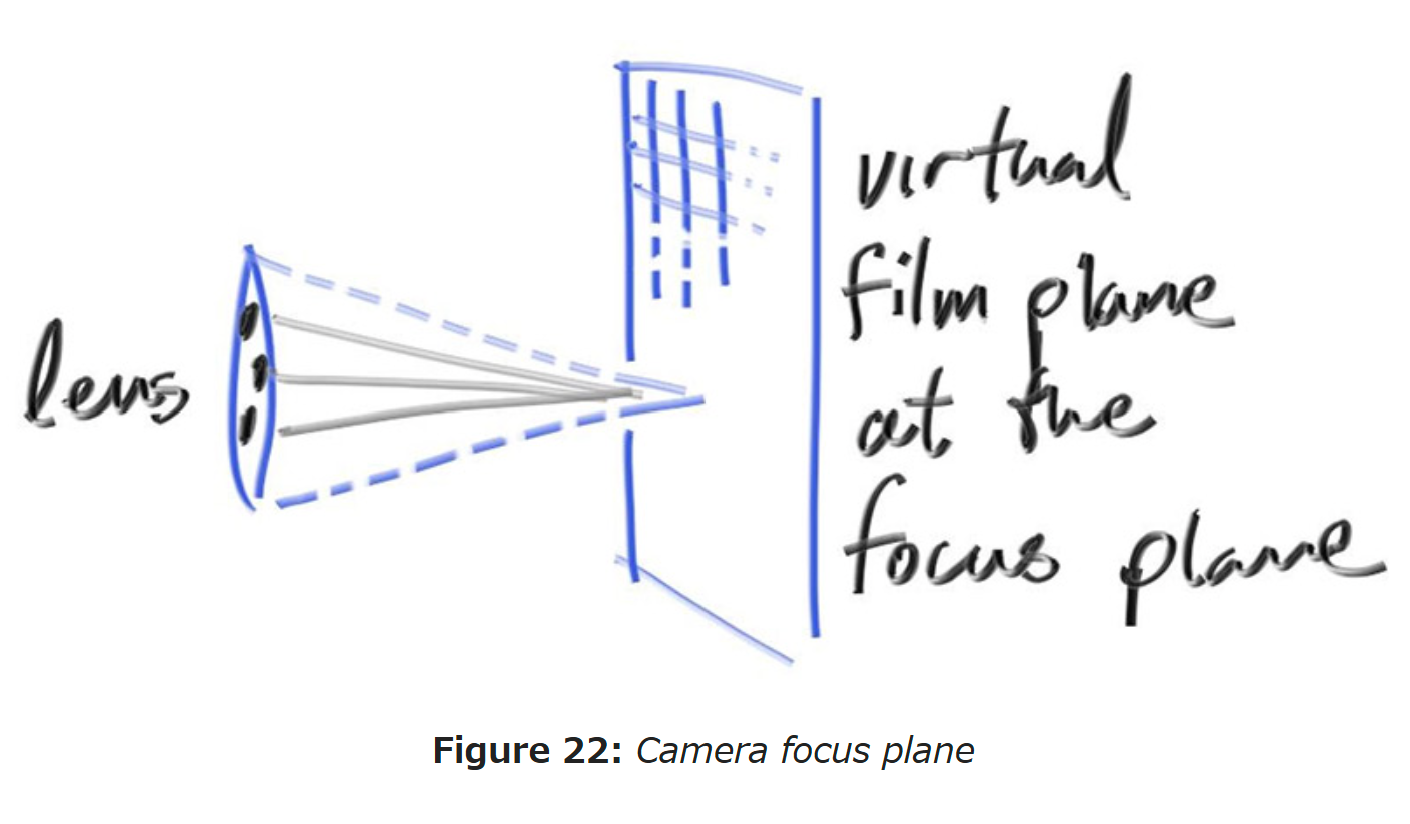 lens
virtual
film plane
at the
focus plane
Figure 22: Camera focus plane